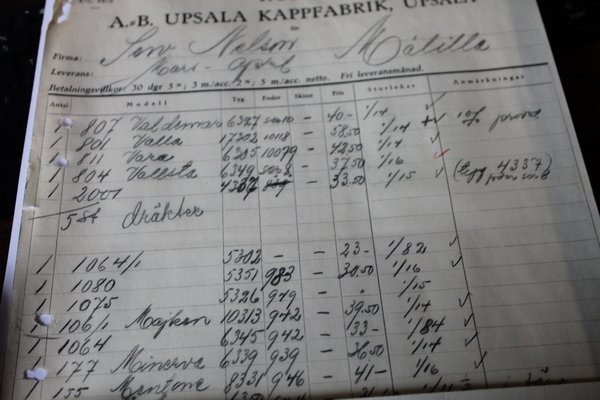 A.-B. UPSALA KAPPFABRIK, UPSALA
för
Firma: Sven Nelson Målilla
Leverans: Mars - April
Betalningsvillkor: 30 dgr 5 %; 3 m/acc. 2 %; 5 m/acc. netto. Fri leveransmånad.
Antal Modell Tyg Foder Skinn Pris Storlekar Anmärkningar
1 807 Valdemar 6327 – 40- 1/14
1 801 Valla 17202 10118 – 58.50 1/14
1 811 Vara 6205 10079 – 42.50 1/14
1 804 Vallsta 6349 – 37.50 1/16
1 2001 4337 – 33.50 1/15 4337
5 st dräkter
1 1064/1 5302 – – 23- 1/82
1 1080 5351 983 – 30.50 1/16
1 1075 5326 949 – 1/15
1 106/1 Majken 10313 942 – 39.50 1/14
1 1064 6345 942 – 33- 1/84
1 177 Minerva 6339 939 – 36.50 1/14
1 155 Mantone 8331 946 – 41- 1/16